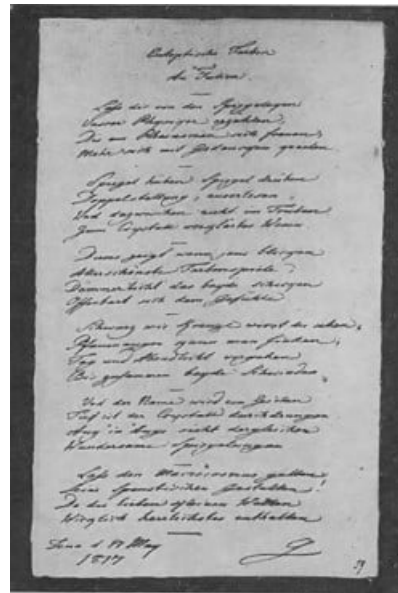 Entoptische Farben
An
Laß dir von den Spiegeleyen
Unsrer Physiker erzählen,
Die am Phänomen sich freuen,
Mehr sich mit Gedancken quälen.
Spiegel hüben Spiegel drüben
Doppelstellung, auserlesen,
Und dazwischen ruht im Trüben
Crystall
Dieses zeigt wenn jene
Allerschönste Farbenspiele
Dämmerlicht das beyde schicken
Offenbart sich dem Gefühle
Schwarz wie Kreuze wirst du sehen,
Pfauenaugen kann man finden,
Tag und Abendlicht vergehen
Bis zusammen beyde schwinden.
Und der Name wird ein Zeichen
Tief ist der Crystall durchdrungen
Aug' in Auge sieht dergleichen
Wundersame Spiegelungen
Laß den gelten
Seine spenstischen Gestalten!
Da die lieben kleinen Welten
Wirklich Herrlichstes enthalten
Jena d. May
1817
G